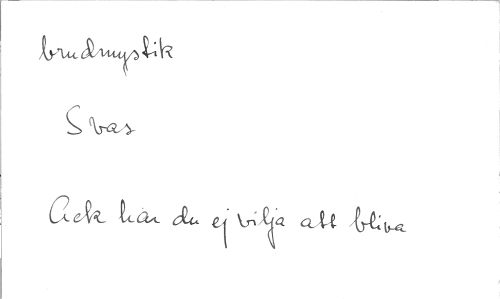 brudmystik
Svas
Ack har du ej vilja att bliva